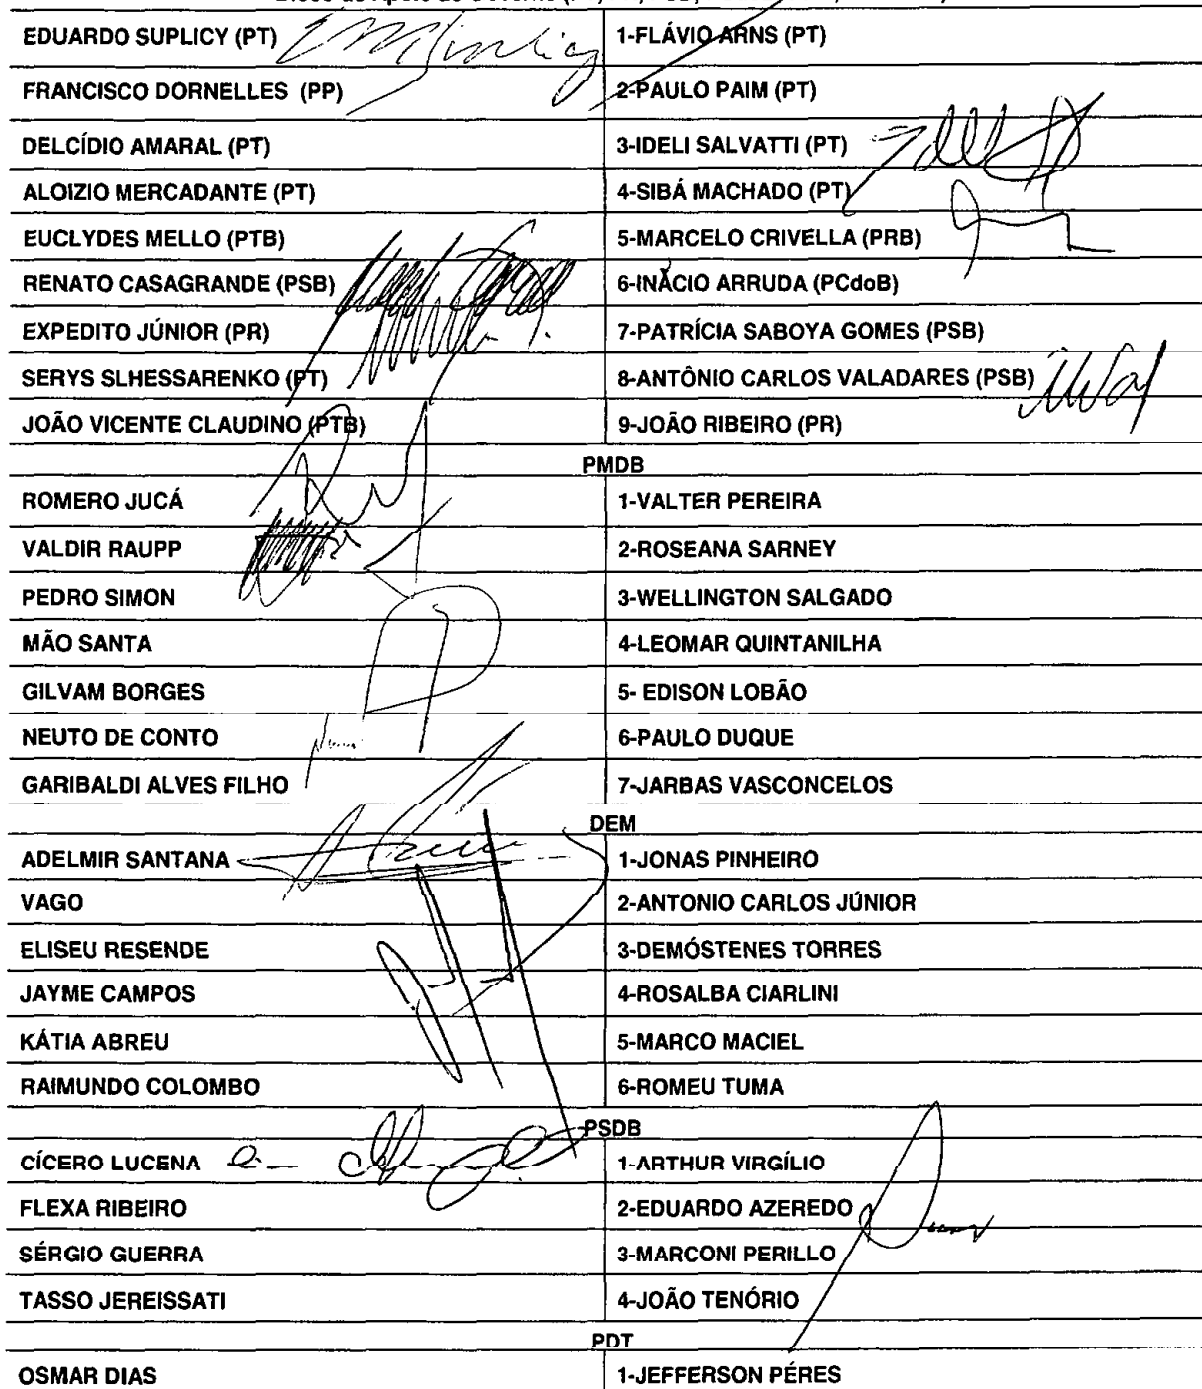 EDUARDO SUPLICY (PT) 1-FLÁVIO ARNS (PT)
FRANCISCO DORNELLES (PP) 2-PAULO PAIM (PT)
DELCÍDIO AMARAL (PT) 3-IDELI SALVATTI (PT)
ALOIZIO MERCADANTE (PT) 4-SIBÁ MACHADO (PT)
EUCLYDES MELLO (PTB) 5-MARCELO CRIVELLA (PRB)
RENATO CASAGRANDE (PSB) 6-INÁCIO ARRUDA (PCdoB)
EXPEDITO JÚNIOR (PR) 7-PATRÍCIA SABOYA GOMES (PSB)
SERYS SLHESSARENKO (PT) 8-ANTÔNIO CARLOS VALADARES (PSB)
JOÃO VICENTE CLAUDINO (PTB) 9-JOÃO RIBEIRO (PR)
PMDB
ROMERO JUCÁ 1-VALTER PEREIRA
VALDIR RAUPP 2-ROSEANA SARNEY
PEDRO SIMON 3-WELLINGTON SALGADO
MÃO SANTA 4-LEOMAR QUINTANILHA
GILVAM BORGES 5- EDISON LOBÃO
NEUTO DE CONTO 6-PAULO DUQUE
GARIBALDI ALVES FILHO 7-JARBAS VASCONCELOS
DEM
ADELMIR SANTANA 1-JONAS PINHEIRO
VAGO 2-ANTONIO CARLOS JÚNIOR
ELISEU RESENDE 3-DEMÓSTENES TORRES
JAYME CAMPOS 4-ROSALBA CIARLINI
KÁTIA ABREU 5-MARCO MACIEL
RAIMUNDO COLOMBO 6-ROMEU TUMA
PSDB
CÍCERO LUCENA 1-ARTHUR VIRGÍLIO
FLEXA RIBEIRO 2-EDUARDO AZEREDO
SÉRGIO GUERRA 3-MARCONI PERILLO
TASSO JEREISSATI 4-JOÃO TENÓRIO
PDT
OSMAR DIAS 1-JEFFERSON PÉRES